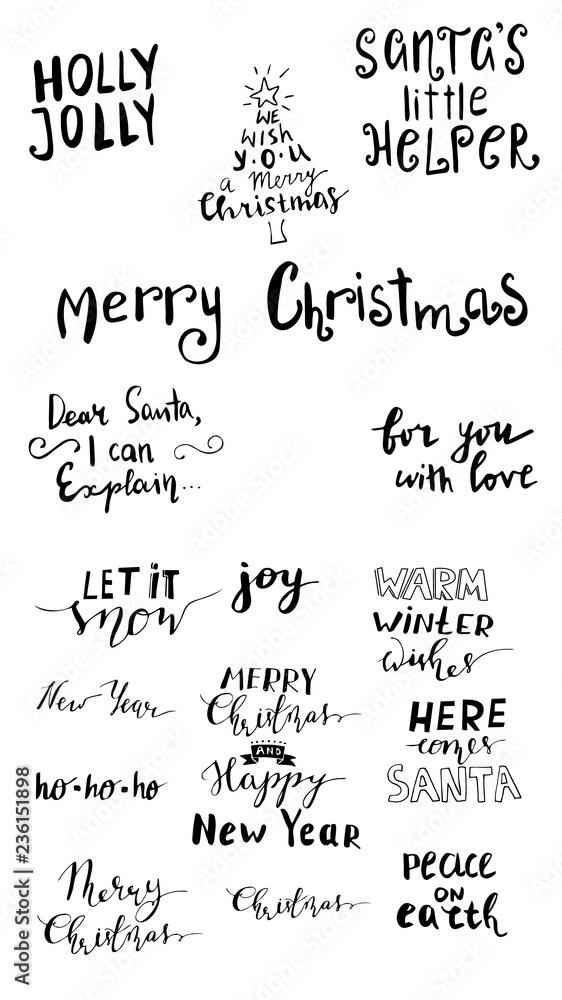 HOLLY
JOLLY
WE
Wish
y·o·u
a Merry
Christmas
SANTA'S
little
HELPER
Merry Christmas
Dear Santa,
I can
Explain...
for you
with love
LET iT
snow
joy
WARM
WiNTER
wishes
New Year
MERRY
Christmas
AND
Happy
New Year
HERE
comes
SANTA
ho·ho·ho
Merry
Christmas
Christmas
peace
ON
earth
Adobe Stock | #236151898